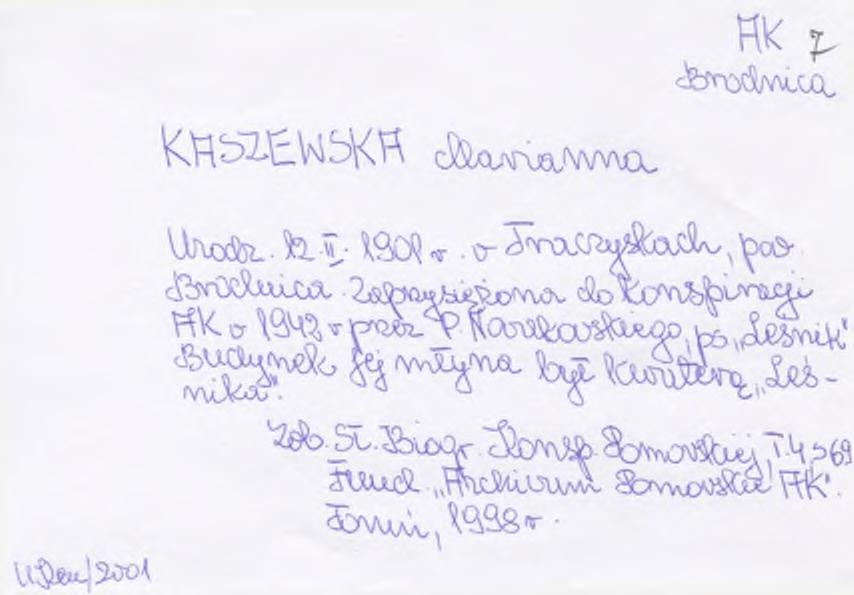 AK 7
Brodnica
KASZEWSKA Marianna
Urodz. 12.II.1901 r. w Traczyskach, pow.
Brodnica. Zaprzysiężona do konspiracji
AK w 1942 r przez P. Nawkowskiego, ps. „Leśnik"
Budynek jej młyna był kwaterą „Leś-
nika".
Zob. Sł. Biogr. Konsp. Pomorskiej T.4 s69
Fund. „Archiwum Pomorskie AK".
Toruń, 1998 r.
/2001